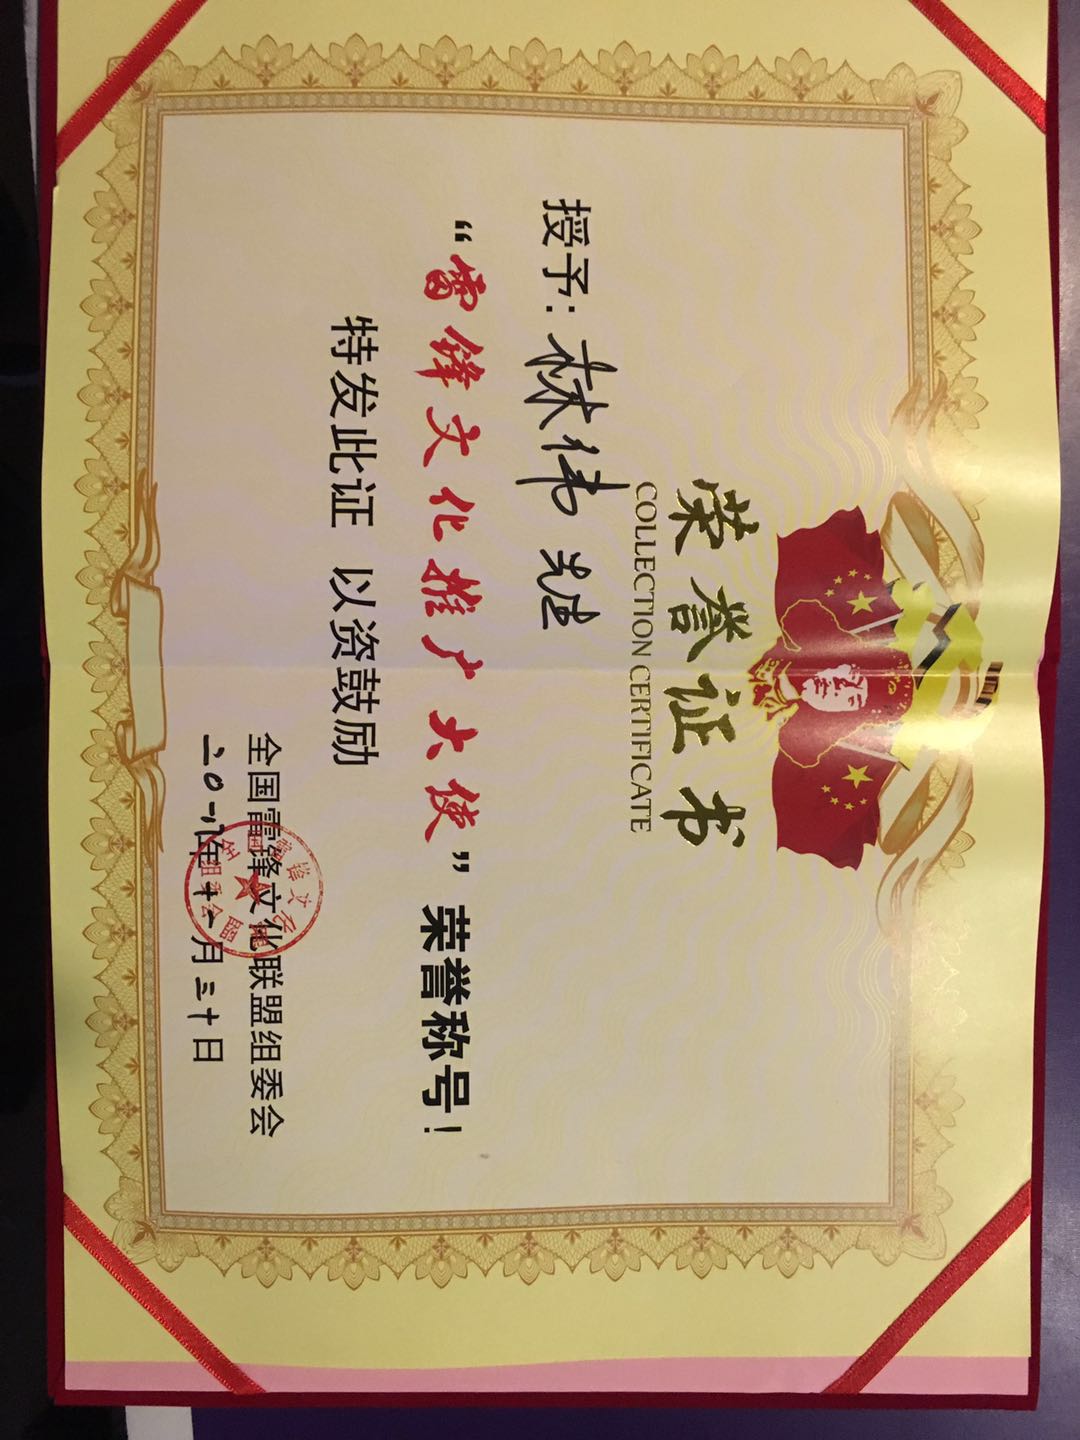 荣誉证书
COLLECTION CERTIFICATE
授予：林伟 先生
“雷锋文化推广大使”荣誉称号！
特发此证 以资鼓励
全国雷锋文化联盟组委会
二〇一 年十 月三十日